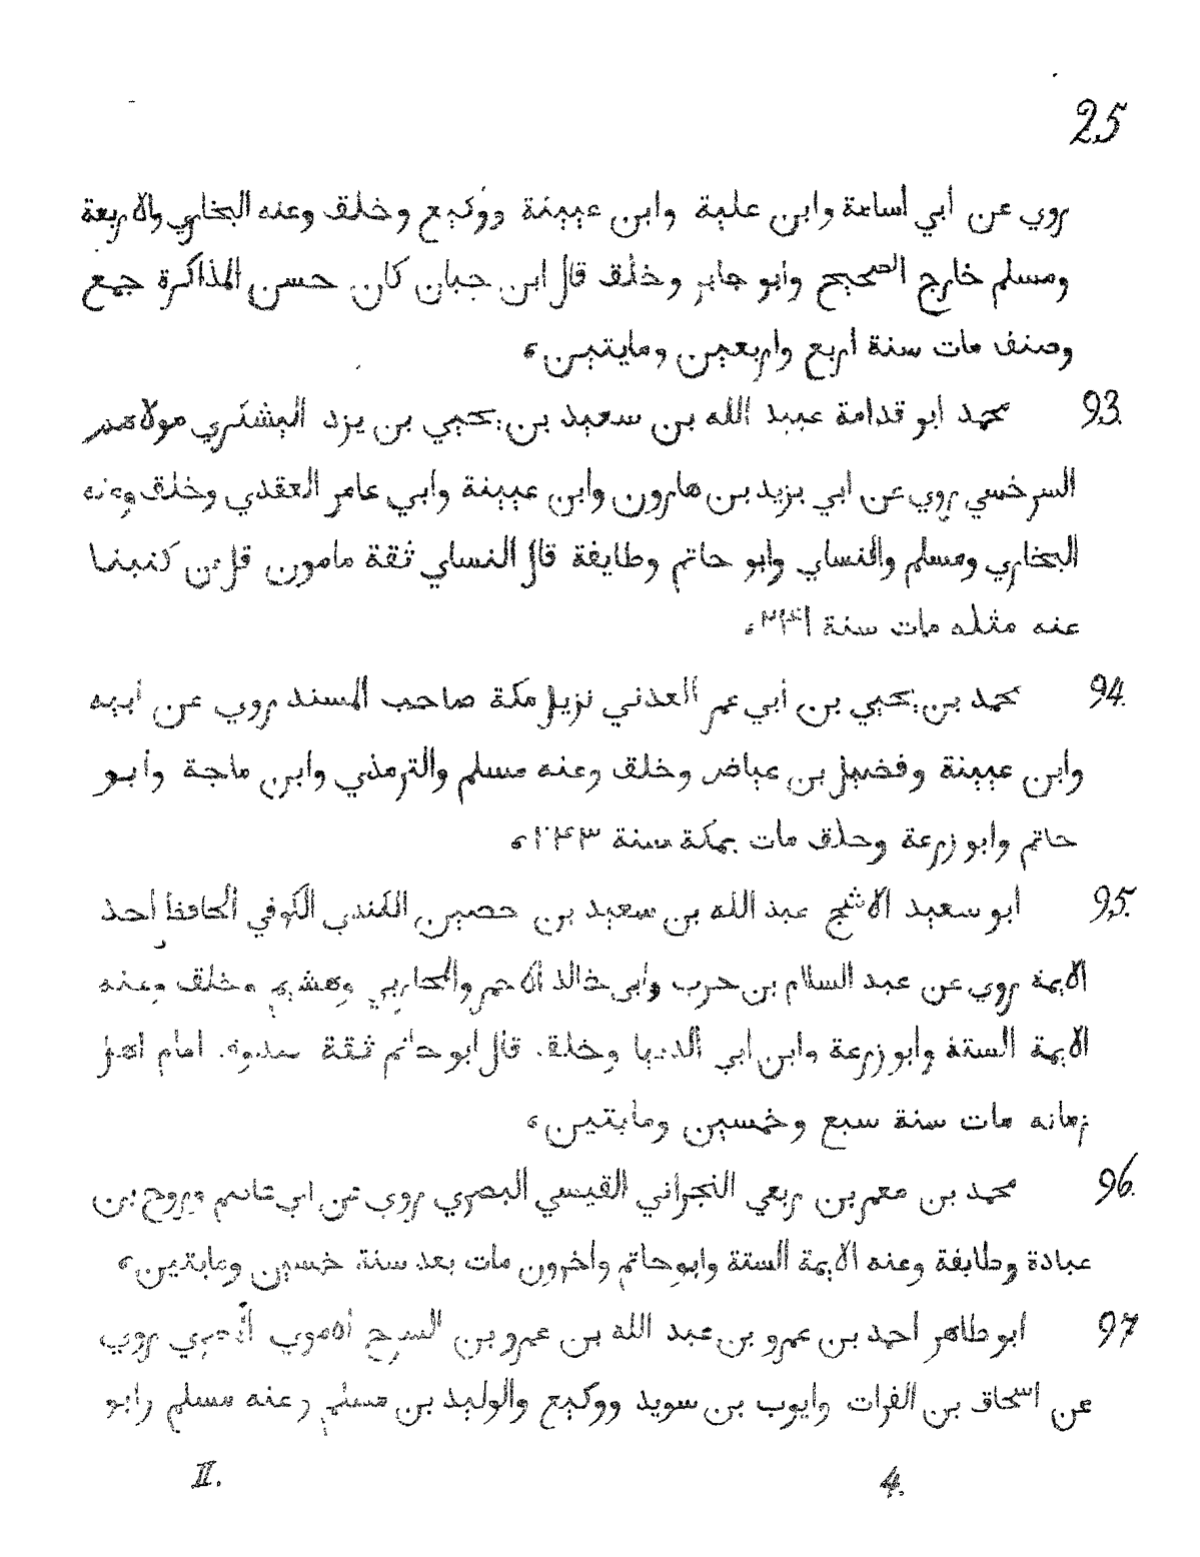 25
روي عن ابي اسامة وابن علية وابن عيينة ووكيع وخلق وعنه البخاري والاربعة
ومسلم خارج الصحيح وابو جابر وخلق قال ابن حبان كان حسن المذاكرة جمع
وصنف مات سنة اربع واربعين ومايتين،
93. محمد ابو قدامة عبيد الله بن سعيد بن يحيي بن يزد البشكري مولاهم
السرخسي روي عن ابي يزيد بن هارون وابن عيينة وابي عامر العقدي وخلق وعنه
البخاري ومسلم والنساي وابو حاتم وطايفة قال النساي ثقة مامون قل من كتبنا
عنه مثله مات سنة ٢٤١،
94. محمد بن يحيي بن ابي عمر العدني نزيل مكة صاحب المسند روي عن ابيه
وابن عيينة وفضيل بن عياض وخلق وعنه مسلم والترمذي وابن ماجة وابو
حاتم وابو زرعة وخلق مات بمكة سنة ٢٤٣،
95. ابو سعيد الاشج عبد الله بن سعيد بن حصين الكندي الكوفي الحافظ احد
الايمة روي عن عبد السلام بن حرب وابي خالد الاحمر والمحاربي وهشيم وخلق وعنه
الايمة الستة وابو زرعة وابن ابي الدنيا وخلق قال ابو حاتم ثقة صدوق امام اهل
زمانه مات سنة سبع وخمسين ومايتين،
96. محمد بن معمر بن ربعي النجراني القيسي البصري روي عن ابي عاصم وروح بن
عبادة وطايفة وعنه الايمة الستة وابو حاتم واخرون مات بعد سنة خمسين ومايتين،
97 ابو طاهر احمد بن عمرو بن عبد الله بن عمرو بن السرح الاموي المصري روي
عن اسحاق بن الفرات وايوب بن سويد ووكيع والوليد بن مسلم وعنه مسلم وابو
II. 4.